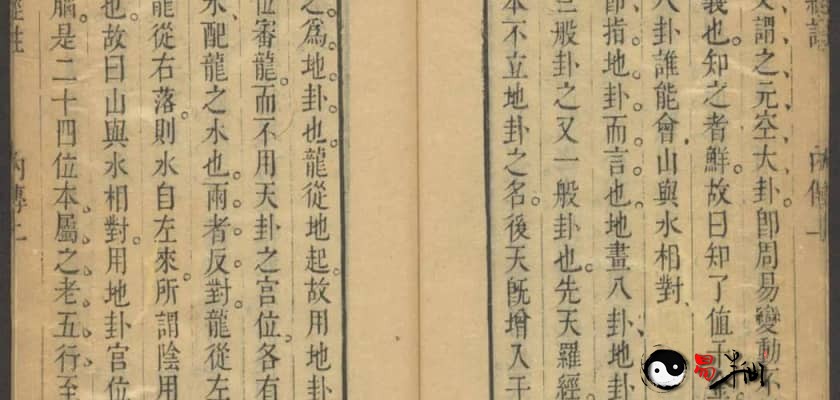 又謂之元空大卦卽周易變動不
義也知之者鮮故曰知了值千金
八卦誰能會山與水相對
卽指地卦而言也地畫八卦地卦
三般卦之又一般卦也先天羅經
本不立地卦之名後天旣增入干
之爲地卦也龍從地起故用地卦
位審龍而不用天卦之宮位各有
水配龍之水也兩者反對龍從左
龍從右落則水自左來所謂陰用
也故曰山與水相對用地卦宮位
腦是二十四位本屬之老五行至
內傳上
易